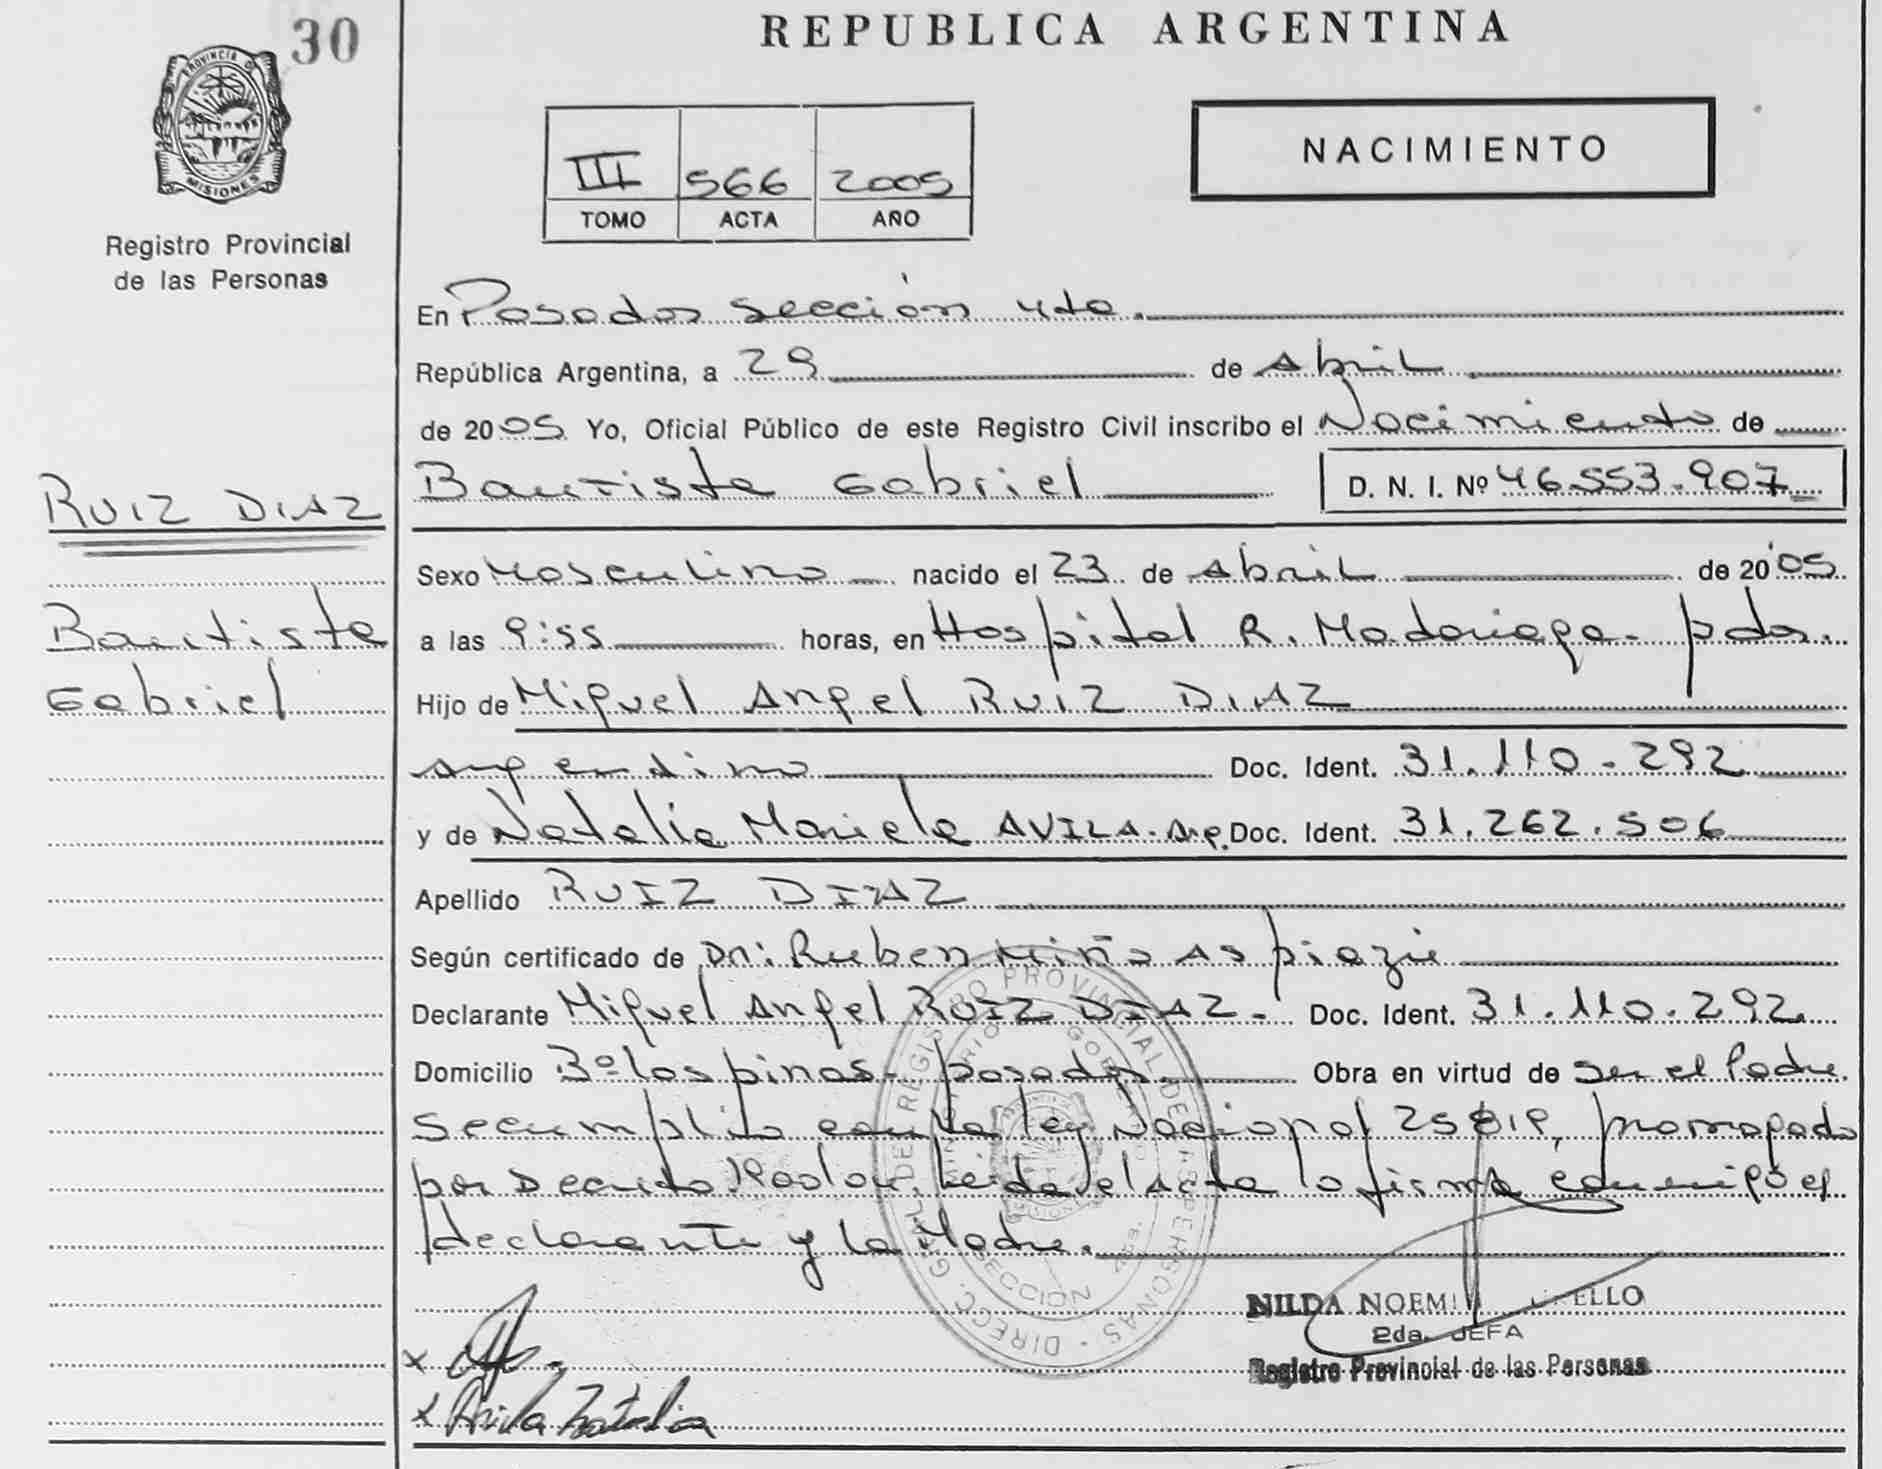 30
PROVINCIA D
MISIONES
Registro Provincial
de las Personas
REPUBLICA ARGENTINA
III 566 2005
TOMO ACTA AÑO
NACIMIENTO
En Posadas sección 4ta.
República Argentina, a 29 de Abril
de 2005 Yo, Oficial Público de este Registro Civil inscribo el Nacimiento de
Bautista Gabriel D. N. I. Nº 46.553.907
RUIZ DIAZ
Bautista
Gabriel
Sexo Masculino nacido el 23 de Abril de 2005
a las 9:55 horas, en Hospital R. Madariaga - pdas.
Hijo de Miguel Angel RUIZ DIAZ
argentino Doc. Ident. 31.110.292
y de Natalia Mariela AVILA. Arg. Doc. Ident. 31.262.506
Apellido RUIZ DIAZ
Según certificado de Dr: Ruben Miño As
Declarante Miguel Angel RUIZ DIAZ - Doc. Ident. 31.110.292
Domicilio Bº los pinos - posadas Obra en virtud de ser el Padre.
Se cumplió con la ley Nacional 25819, prorrogado
por Decreto. Leída el acta la firma conmigo el
declarante y la Madre.
DIRECC. GRAL. DE REGISTRO PROVINCIAL DE LAS PERSONAS
GOBIERNO
SECCION
NILDA NOEMI ELLO
2da. JEFA
Registro Provincial de las Personas
x
x Avila Natalia